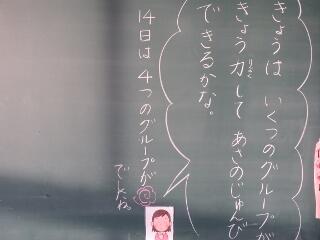 きょうは いくつのグループが
きょう力して あさのじゅんび
できるかな。
14日は 4つのグループが
でしたね。